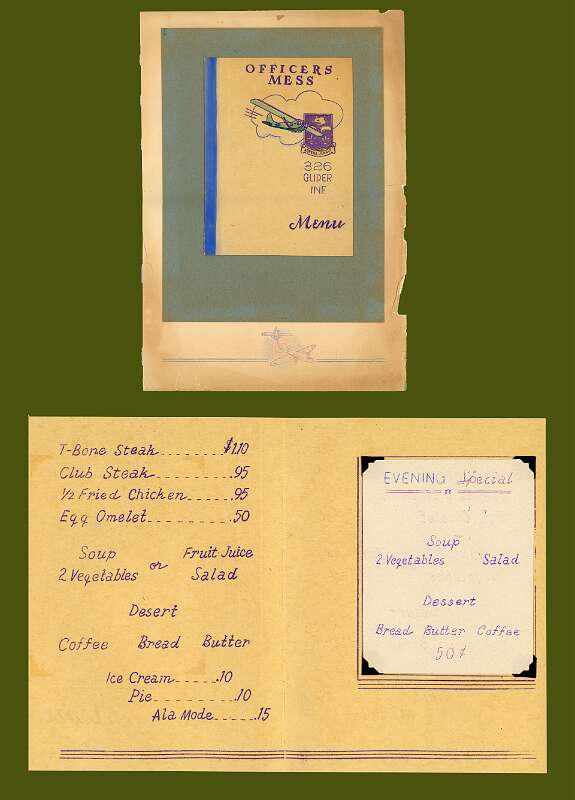 OFFICERS
MESS
326
GLIDER
INF
Menu
T-Bone Steak $1.10
Club Steak .95
1/2 Fried Chicken .95
Egg Omelet .50
Soup or Fruit Juice
2 Vegetables Salad
Desert
Coffee Bread Butter
Ice Cream .10
Pie .10
Ala Mode .15
EVENING Special
Soup
2 Vegetables Salad
Dessert
Bread Butter Coffee
50¢